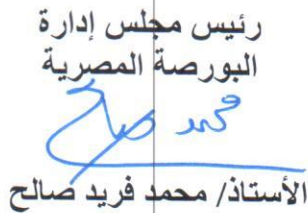 رئيس مجلس إدارة
البورصة المصرية
محمد صالح
الأستاذ/ محمد فريد صالح